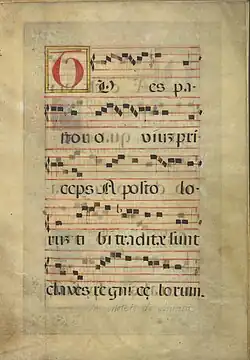 O Es pa-
stor o uiuz pri
ceps Aposto lo-
ruz ti bi traditæ sunt
claves regni cę lorum.